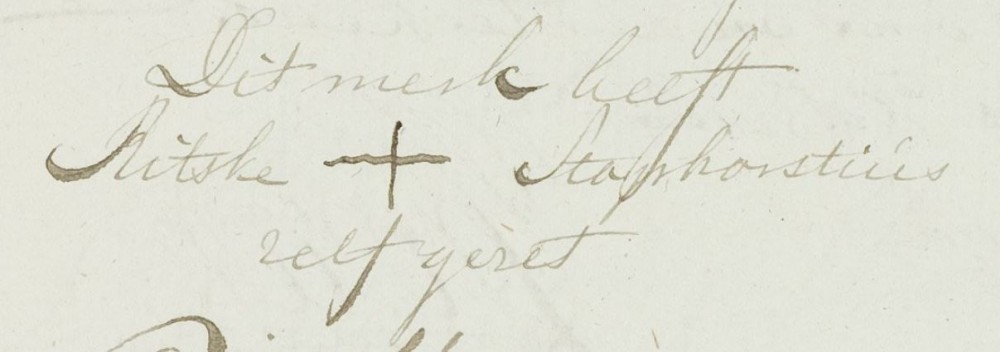 Dit merk heeft
Ritske + Staphorstius
zelf gezet